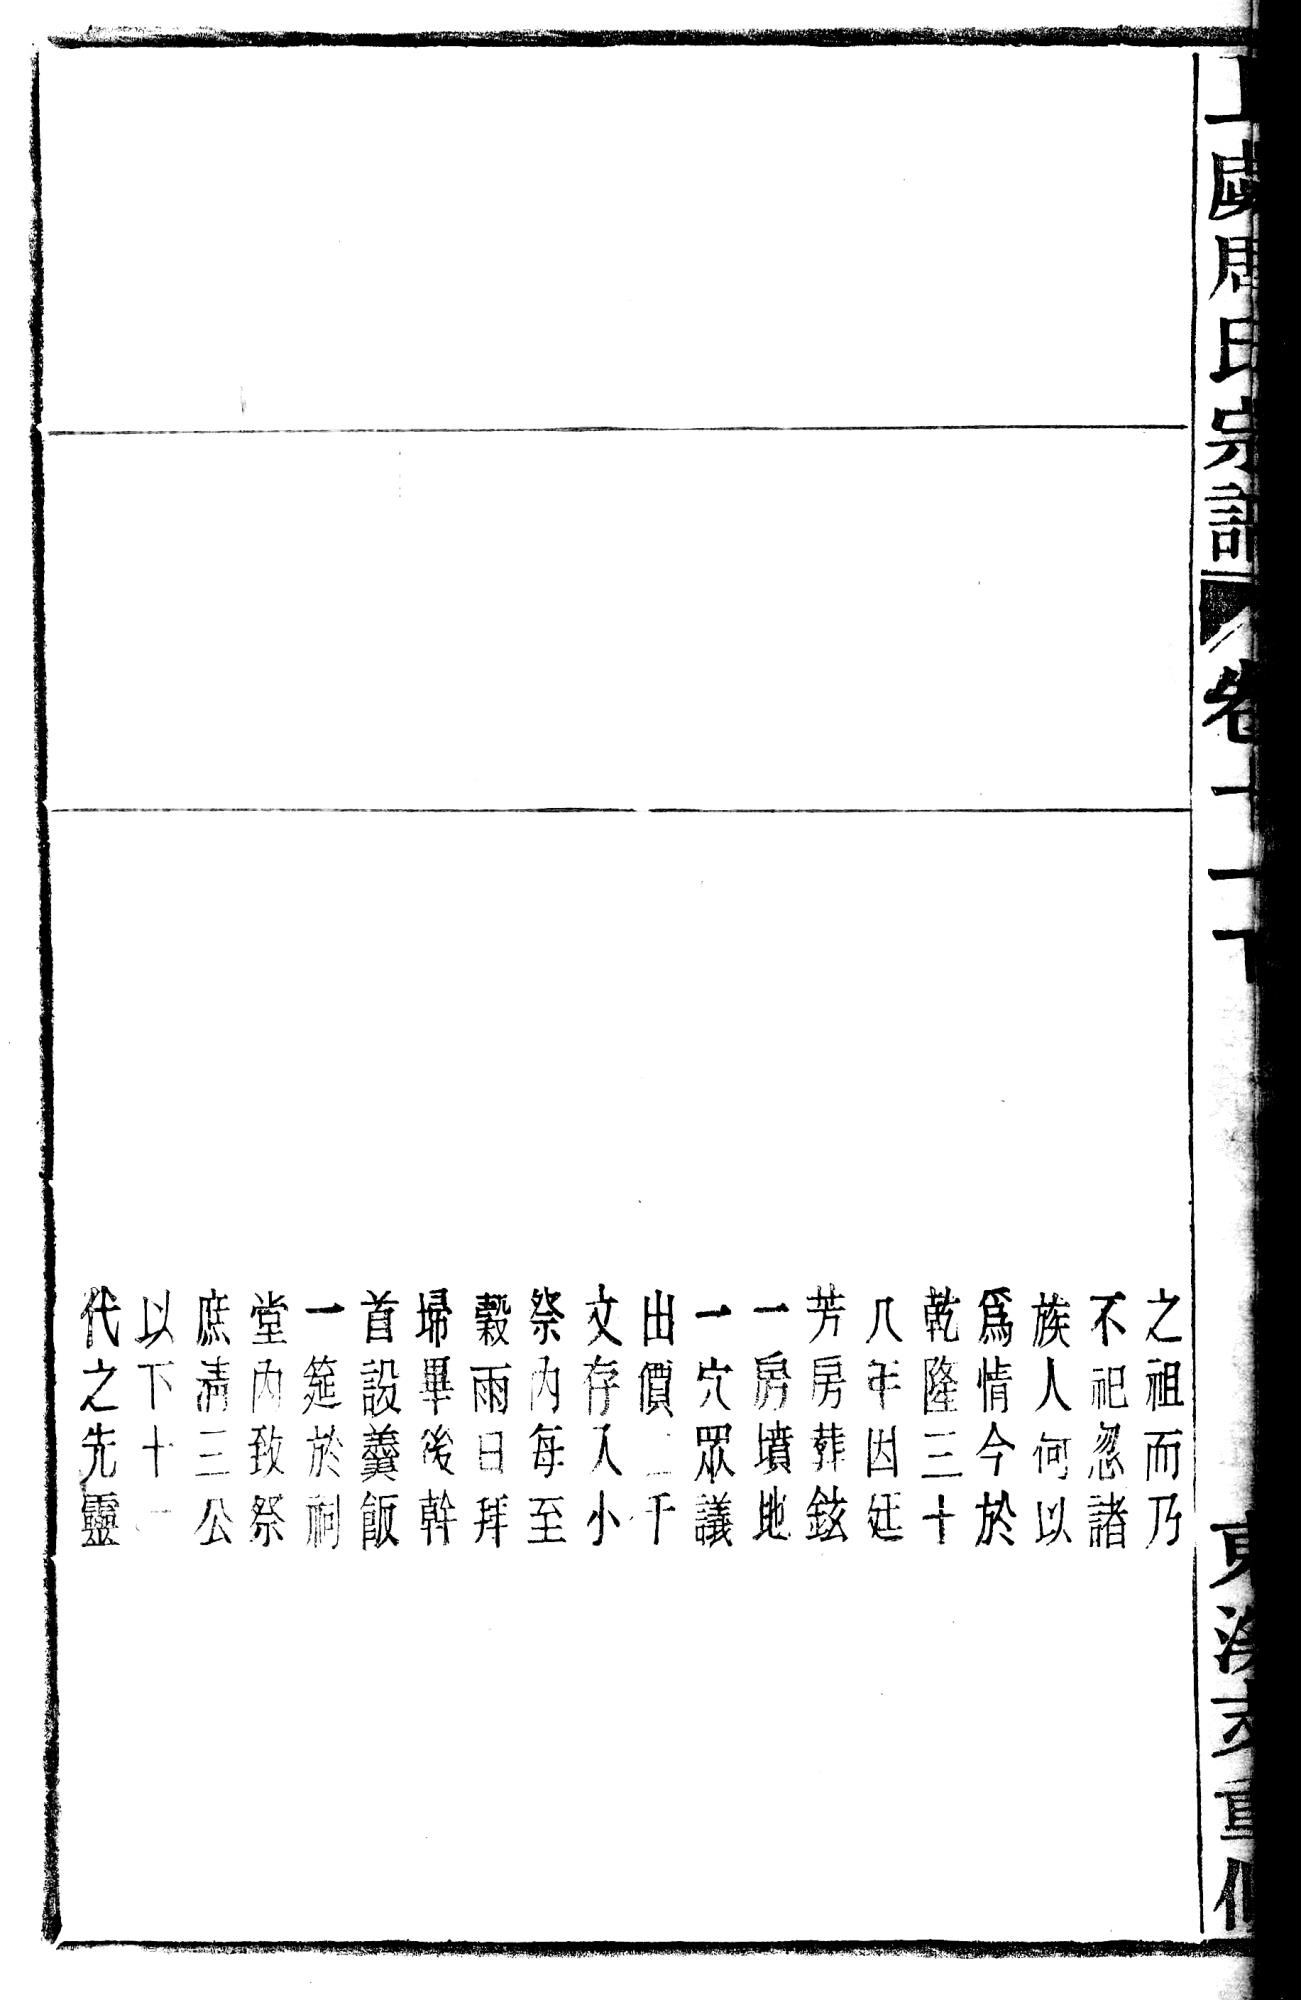 周氏宗譜
卷十一下
重修
之祖而乃
不祀忽諸
族人何以
爲情今於
乾隆三十
八年因廷
芳房葬鉉
一房墳地
一穴眾議
出價二千
文存入小
祭內每至
穀雨日拜
埽畢後幹
首設羹飯
一筵於祠
堂內致祭
庶淸三公
以下十一
代之先靈